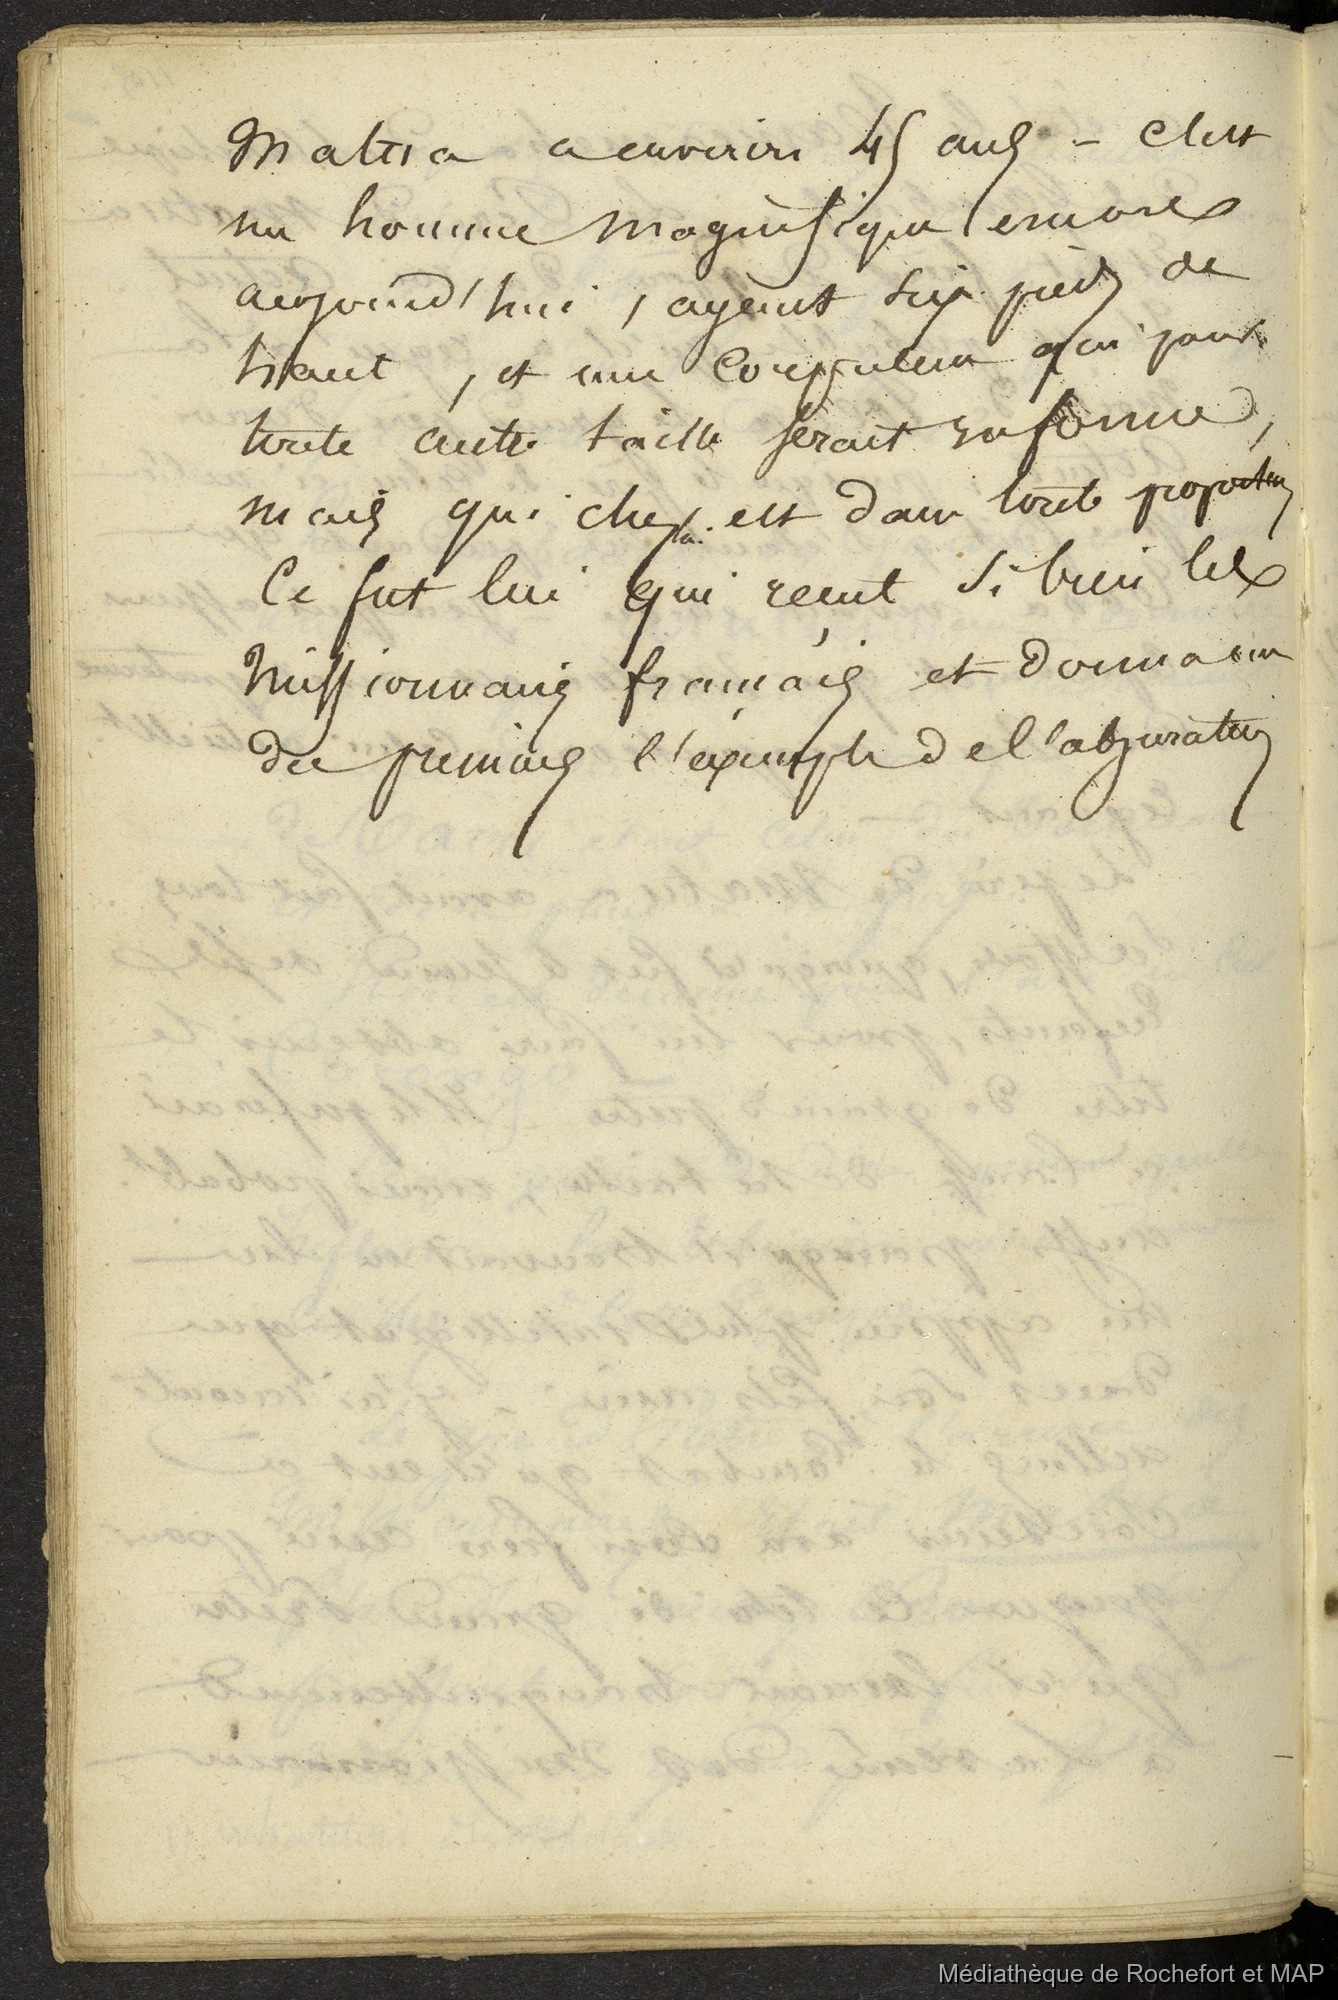 Matua a environ 45 ans – C'est
un homme magnifique encore
aujourd'hui, ayant six pieds de
haut, et une corpulence qui pour
toute autre taille serait
mais qui chez lui est dans toute proportion
Ce fut lui qui reçut si bien les
Missionnaires français et donna un
des premiers l'exemple de l'abjuration
Médiathèque de Rochefort et MAP